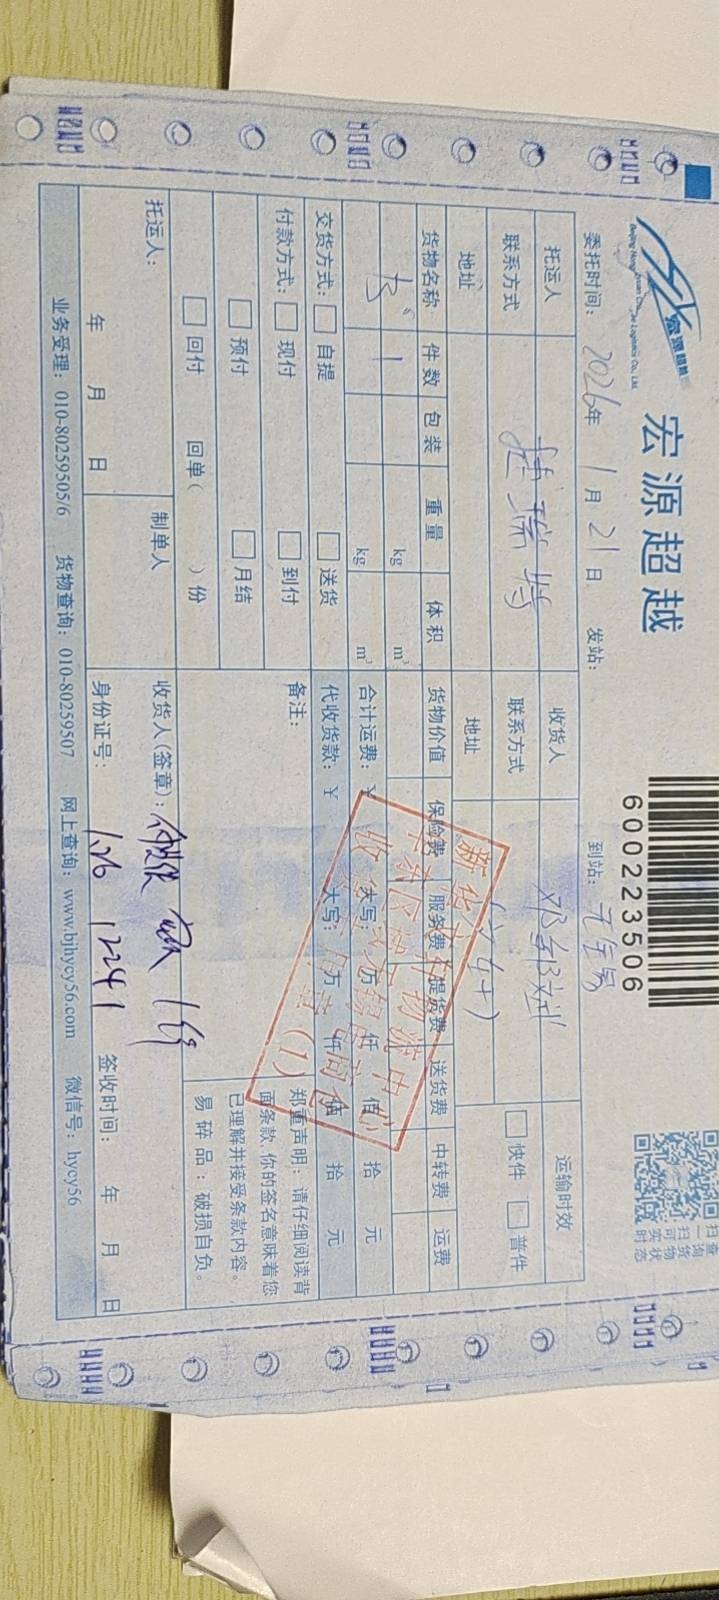 宏源超越
Beijing Hongyuan Chaoyue Logistics Co., Ltd.
宏源超越
600223506
扫一扫
查询货物
可实时状态
委托时间：2026年1月21日 发站： 到站：
托运人 捷瑞特 收货人 运输时效
联系方式 联系方式 快件 普件
地址 地址
货物名称 件数 包装 重量 体积 货物价值 保险费 服务费 提货费 送货费 中转费 运费
1 kg m³
kg m³ 合计运费：¥ 大写： 万 仟 佰 拾 元
交货方式： 自提 送货 代收货款：¥ 大写： 万 仟 佰 拾 元
付款方式： 现付 到付 备注：
预付 月结
回付 回单（ ）份
郑重声明：请仔细阅读背
面条款，你的签名意味着您
已理解并接受条款内容。
易碎品：破损自负。
托运人： 制单人 收货人(签章)：
年 月 日 身份证号： 签收时间： 年 月 日
业务受理：010-80259505/6 货物查询：010-80259507 网上查询：www.bjhycy56.com 微信号：hycy56